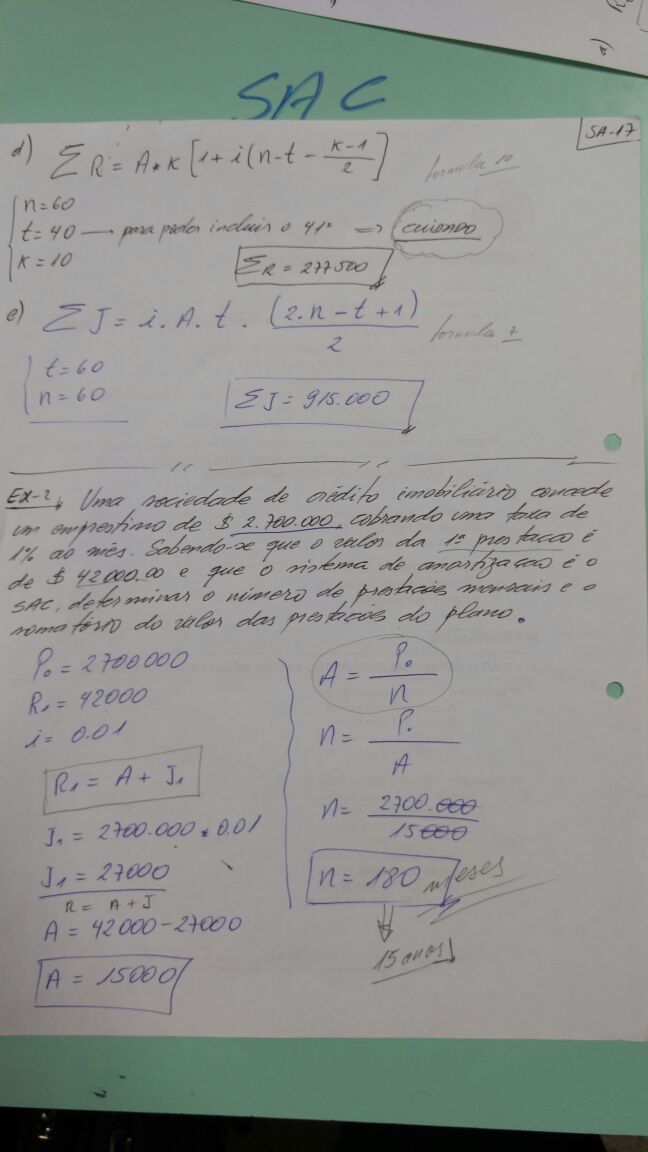 SAC
SA-17
d) ΣR = A*K [1+i(n-t-\frac{K-1}{2}] formula 10
n=60
t=40 — para poder incluir o 41º => CUIDADO
K=10
ΣR = 277500
e) ΣJ = i.A.t. \frac{(2.n-t+1)}{2} formula 7
t=60
n=60
ΣJ = 915.000
Ex-2, Uma sociedade de crédito imobiliário concede
um emprestimo de $ 2.700.000, cobrando uma taxa de
1% ao mês. Sabendo-se que o valor da 1ª prestação é
de $ 42000.00 e que o sistema de amortização é o
SAC, determinar o número de prestações mensais e o
somatório do valor das prestações do plano.
P₀ = 2700000
R₁ = 42000
i = 0.01
R₁ = A + J₁
J₁ = 2700.000 * 0.01
J₁ = 27000
R = A+J
A = 42000-27000
A = 15000
A = \frac{P₀}{n}
n = \frac{P₀}{A}
n = \frac{2700.000}{15000}
n = 180 meses
15 anos
a)